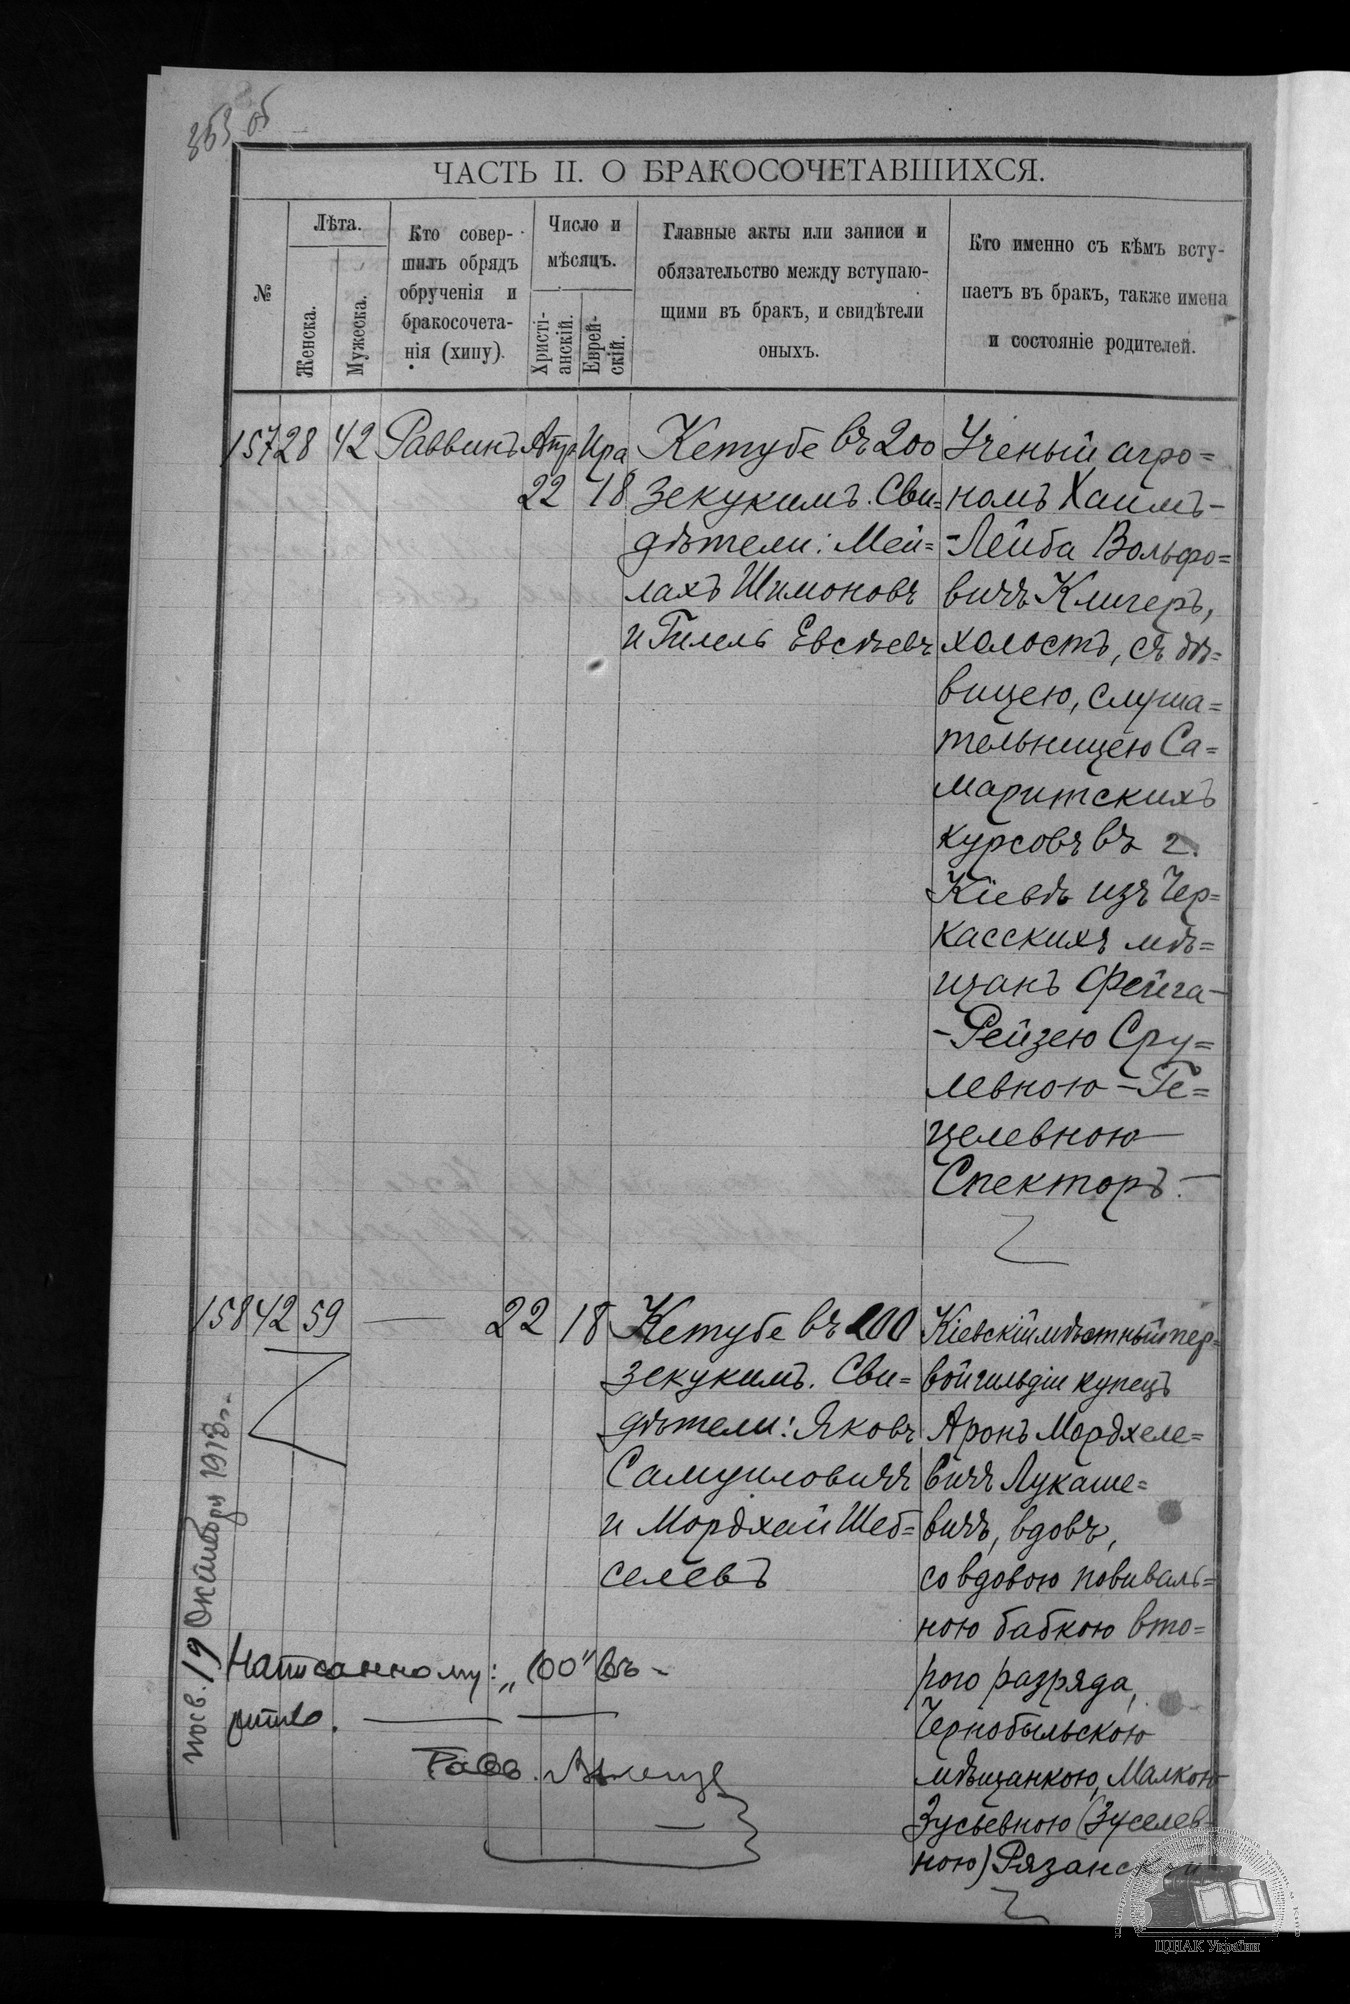 363 об
ЧАСТЬ II. О БРАКОСОЧЕТАВШИХСЯ.
№
Лѣта.
Женска.
Мужеска.
Кто совер-
шилъ обрядъ
обрученія и
бракосочета-
нія (хипу).
Число и
мѣсяцъ.
Христі-
анскій.
Еврей-
скій.
Главные акты или записи и
обязательство между вступаю-
щими въ бракъ, и свидѣтели
оныхъ.
Кто именно съ кѣмъ всту-
паетъ въ бракъ, также имена
и состояніе родителей.
157 28 42 Раввинъ Апр 22 Ира 18
Кетубе въ 200
зекукимъ. Сви=
дѣтели: Мей=
лахъ Шимоновъ
и Гилель Евсѣевъ
Ученый агро=
номъ Хаимъ-
-Лейба Вольфо=
вичъ Клигеръ,
холостъ, съ дѣ=
вицею, слуша=
тельницею Са=
маритскихъ
курсовъ въ г.
Кіевѣ изъ Чер=
касскихъ мѣ=
щанъ Фейга-
-Рейзею Сру=
левною-Ге=
целевною
Спекторъ.-
158 42 59 — 22 18
Кетубе въ 200
зекукимъ. Сви=
дѣтели: Яковъ
Самуиловичъ
и Мордхай Шеб=
селевъ
Кіевскій мѣстный пер=
вой гильдіи купецъ
Аронъ Мордхеле=
вичъ Лукаше=
вичъ, вдовъ,
со вдовою повиваль=
ною бабкою вто=
рого разряда,
Чернобыльскою
мѣщанкою, Малкою
Зусьевною (Зуселев
ною) Рязанской
19 Октября 1913 г.
Написанному: „00" вѣ-
рить.
Равв.
ЦДІАК України